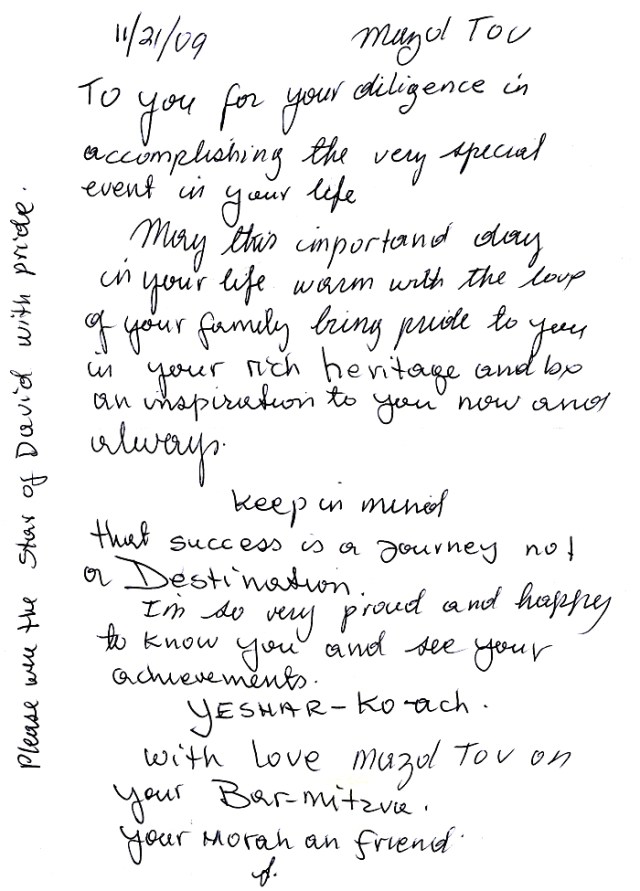 11/21/09 Mazol Tov
To you for your diligence in
accomplishing the very special
event in your life
May this importand day
in your life warm with the love
of your family bring pride to you
in your rich heritage and be
an inspiration to you now and
always.
Keep in mind
that success is a Journey not
a Destination.
I'm so very proud and happy
to know you and see your
achievements.
YESHAR-Ko-ach.
with love Mazol Tov on
your Bar-mitzva.
your Morah an friend.
Please were the Star of David with pride.